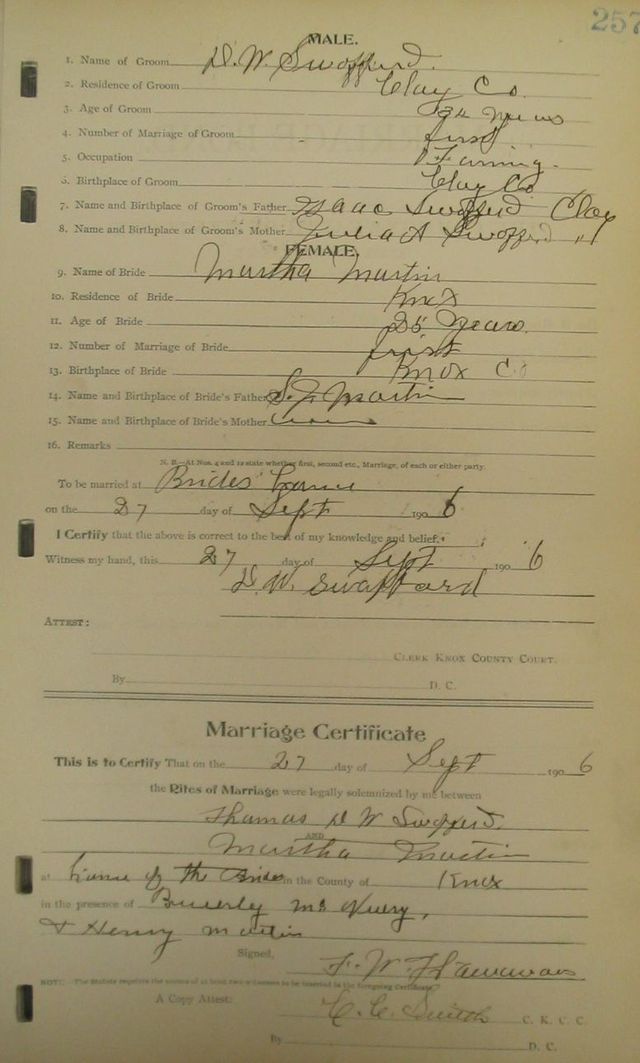 257
MALE.
1. Name of Groom D. W. Swofford.
2. Residence of Groom Clay Co.
3. Age of Groom years
4. Number of Marriage of Groom first
5. Occupation Farming.
6. Birthplace of Groom Clay Co
7. Name and Birthplace of Groom's Father Isaac Swofford Clay
8. Name and Birthplace of Groom's Mother Julia A Swofford "
FEMALE.
9. Name of Bride Martha Martin
10. Residence of Bride Knox
11. Age of Bride 25 years.
12. Number of Marriage of Bride first
13. Birthplace of Bride Knox Co
14. Name and Birthplace of Bride's Father S. J. Martin
15. Name and Birthplace of Bride's Mother
16. Remarks
N. B.—At Nos. 4 and 12 state whether first, second etc., Marriage, of each or either party.
To be married at Brides home
on the 27 day of Sept 1906
I Certify that the above is correct to the best of my knowledge and belief.
Witness my hand, this 27 day of Sept 1906
D. W. Swafford
ATTEST:
CLERK KNOX COUNTY COURT.
By D. C.
Marriage Certificate
This is to Certify That on the 27 day of Sept 1906
the Rites of Marriage were legally solemnized by me between
Thomas D W Swofford.
AND
Martha Martin
at home of the Bride in the County of Knox
in the presence of Beverly
& Henry Martin
Signed, F. W.
NOTE: The Statute requires the names of at least two witnesses to be inserted in the foregoing Certificate.
A Copy Attest: C. C. Smith C. K. C. C.
By D. C.